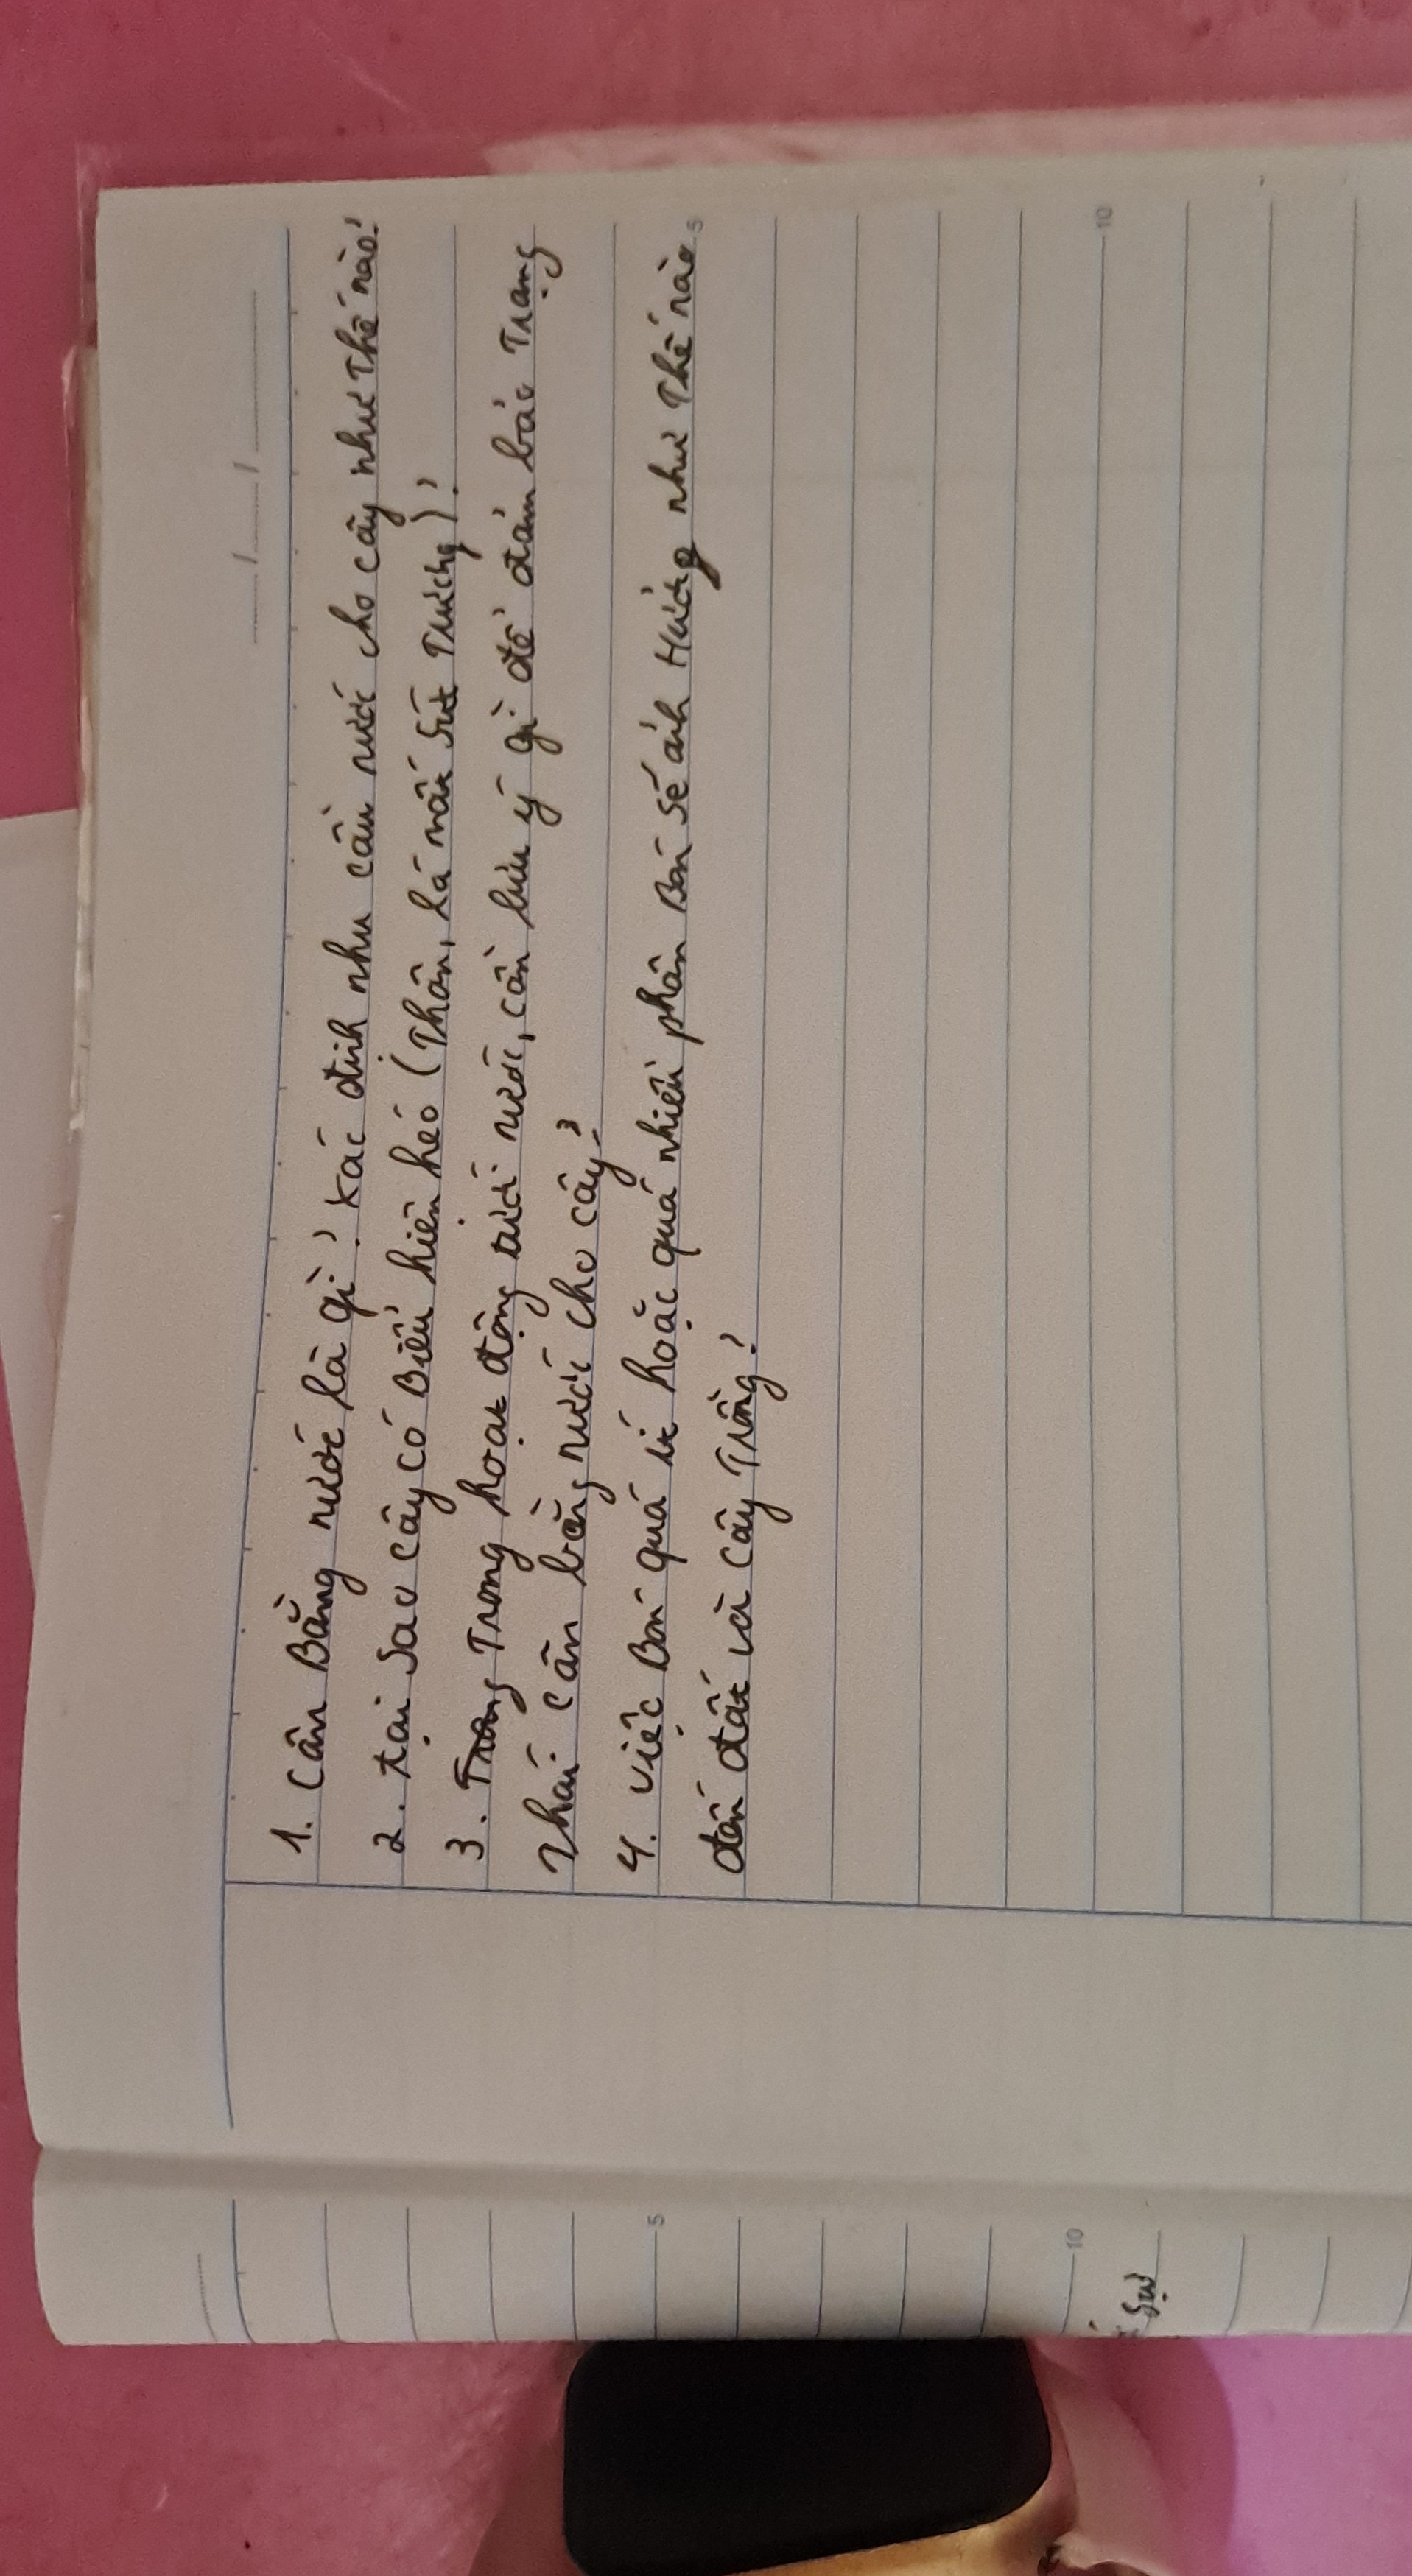 1. Cân Bằng nước là gì? Xác định nhu cầu nước cho cây như Thế nào?
2. tại sao cây có Biểu hiện héo (Thân, lá mất sức Trương)?
3. Trong Trong hoạt động tưới nước, cần lưu ý gì để đảm bảo Trạng
Thái cân bằng nước cho cây?
4. việc Bón quá ít hoặc quá nhiều phân Bón sẽ ảnh Hưởng như Thế nào
đến đất và cây Trồng?
5
10
5
10
sự